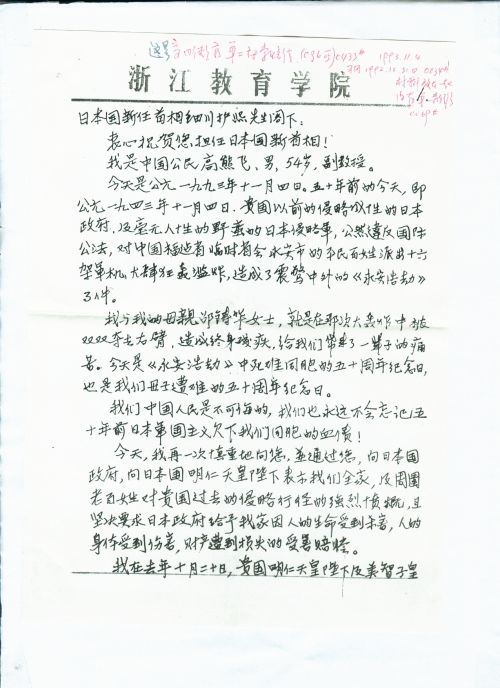 1993.11.4
浙江教育学院
日本国新任首相细川护熙先生阁下:
衷心祝贺您担任日本国新首相!
我是中国公民高熊飞、男,54岁,副教授。
今天是公元一九九三年十一月四日。五十年前的今天,即
公元一九四三年十一月四日,贵国以前的侵略成性的日本
政府,派遣无人性的野蛮的日本侵略军,公然违反国际
公法,对中国福建省临时省会永安市的平民百姓派出十六
架军机,大肆狂轰滥炸,造成了震惊中外的《永安浩劫》
事件。
我与我的母亲邵铸华女士,就是在那次大轰炸中被
双双夺去右臂,造成终身残疾,给我们带来了一辈子的痛
苦。今天是《永安浩劫》中死难同胞的五十周年纪念日,
也是我们母子遭难的五十周年纪念日。
我们中国人民是不可侮的,我们也永远不会忘记五
十年前日本军国主义欠下我们同胞的血债!
今天,我再一次慎重地向您,并通过您,向日本国
政府,向日本国明仁天皇陛下表示我们全家,及周围
老百姓对贵国过去的侵略行径的强烈愤慨,且
坚决要求日本政府给予我家因人的生命受到杀害,人的
身体受到伤害,财产遭到损失的受害赔偿。
我在去年十月二十日,贵国明仁天皇陛下及美智子皇